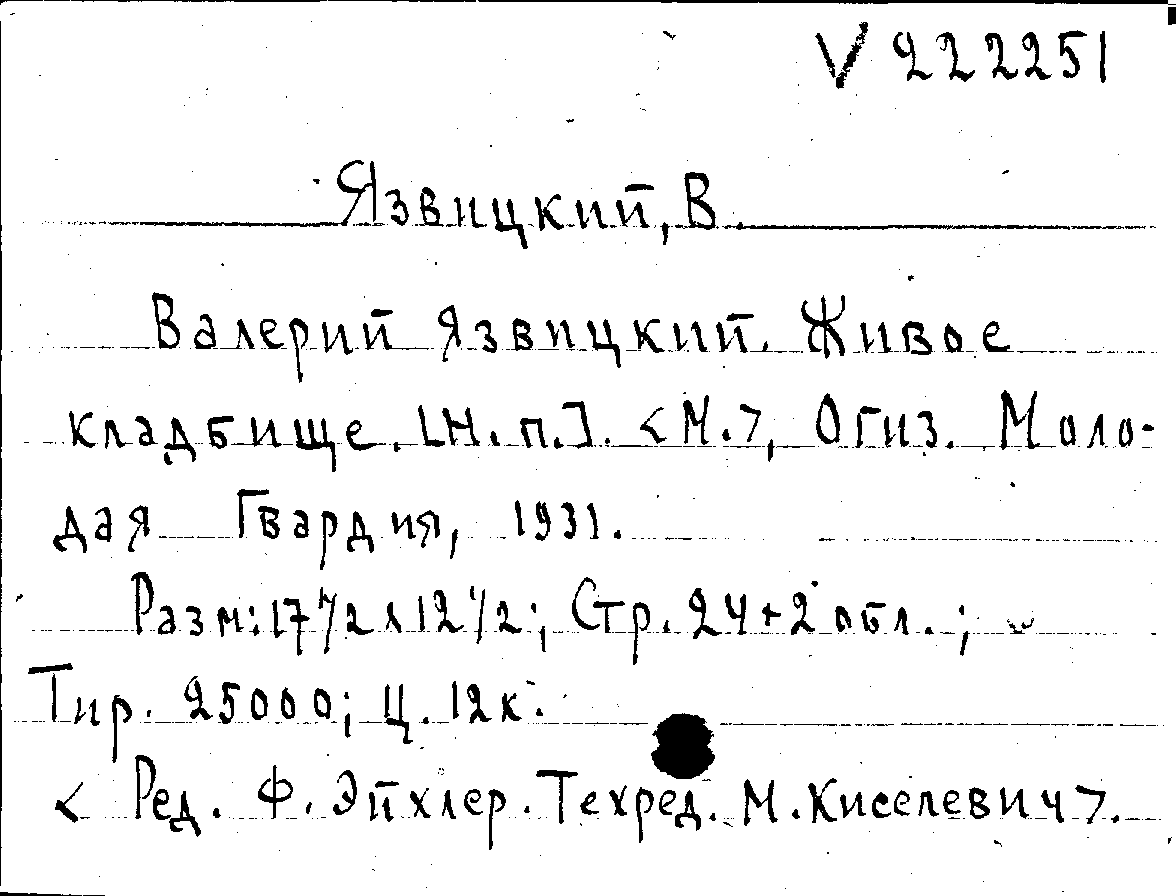 V 222251
Язвицкий, В.
Валерий Язвицкий. Живое
кладбище. [Н. п.]. <М.>, Огиз. Моло-
дая Гвардия, 1931.
Разм: 17 1/2 x 12 1/2; Стр. 24 + 2 обл.;
Тир. 25000; Ц. 12 к.
< Ред. Ф. Эйхлер. Техред. М. Киселевич >.